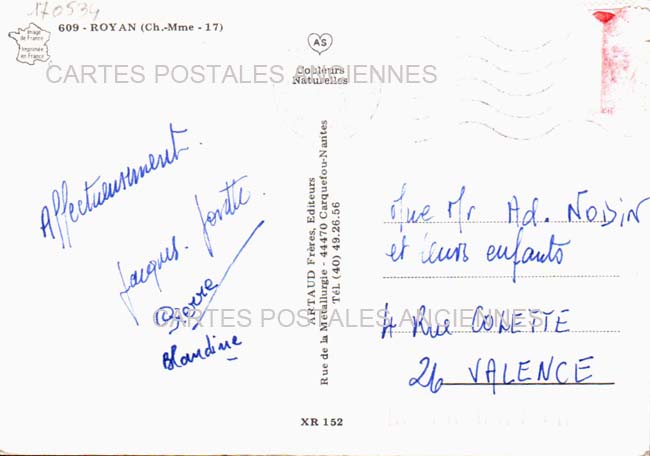 170534
609 - ROYAN (Ch.-Mme - 17)
Image de France
Imprimée en France
AS
Couleurs
Naturelles
CARTES POSTALES ANCIENNES
Affectueusement.
Jacques. Josette.
Pierre
Blandine
ARTAUD Frères, Editeurs
Rue de la Métallurgie - 44470 Carquefou-Nantes
Tél (40) 49.26.56
Mr Ad. NODIN
et leurs enfants
4 Rue COLETTE
26 VALENCE
CARTES POSTALES ANCIENNES
XR 152